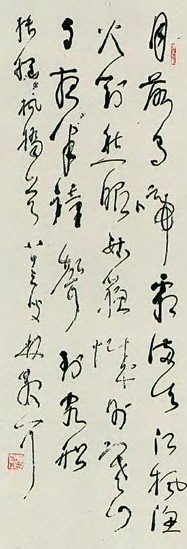 月落烏啼霜滿天江楓漁
火對愁眠姑蘇城外寒山
寺夜半鐘聲到客船
張繼楓橋